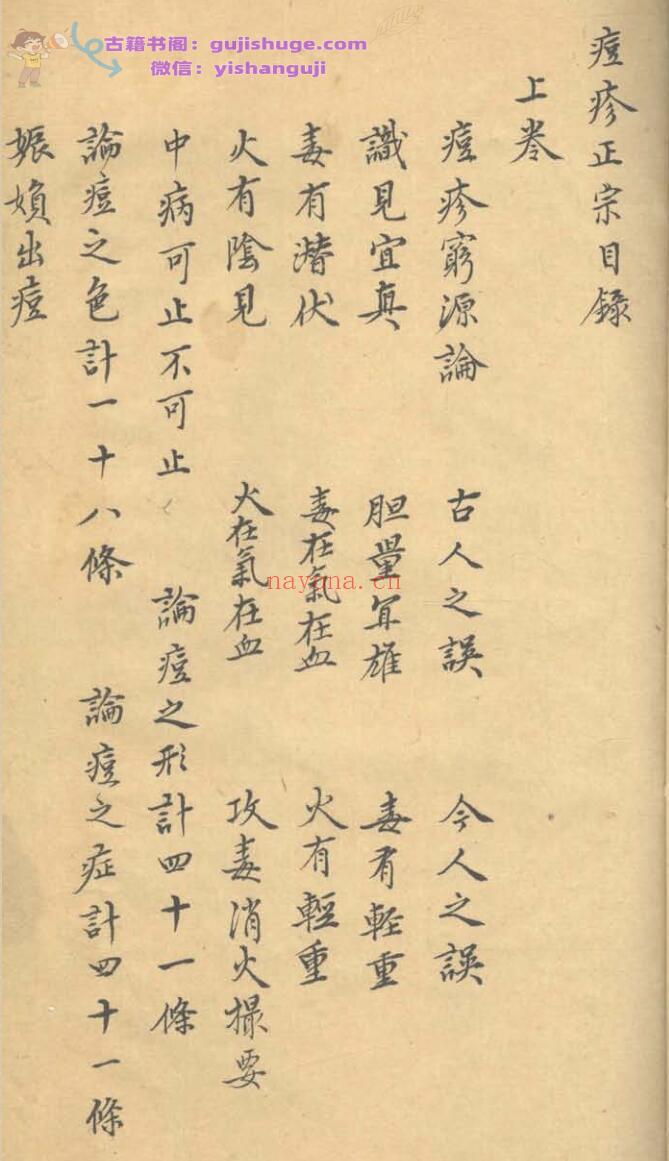 古籍书阁：gujishuge.com
微信：yishanguji
痘疹正宗目錄
上卷
痘疹窮源論 古人之誤 今人之誤
識見宜真 胆量宜雄 毒有輕重
毒有潜伏 毒在氣在血 火有輕重
火有陰見 火在氣在血 攻毒消火撮要
中病可止不可止 論痘之形計四十一條
論痘之色計一十八條 論痘之症計四十一條
娠婦出痘
nayona.cn